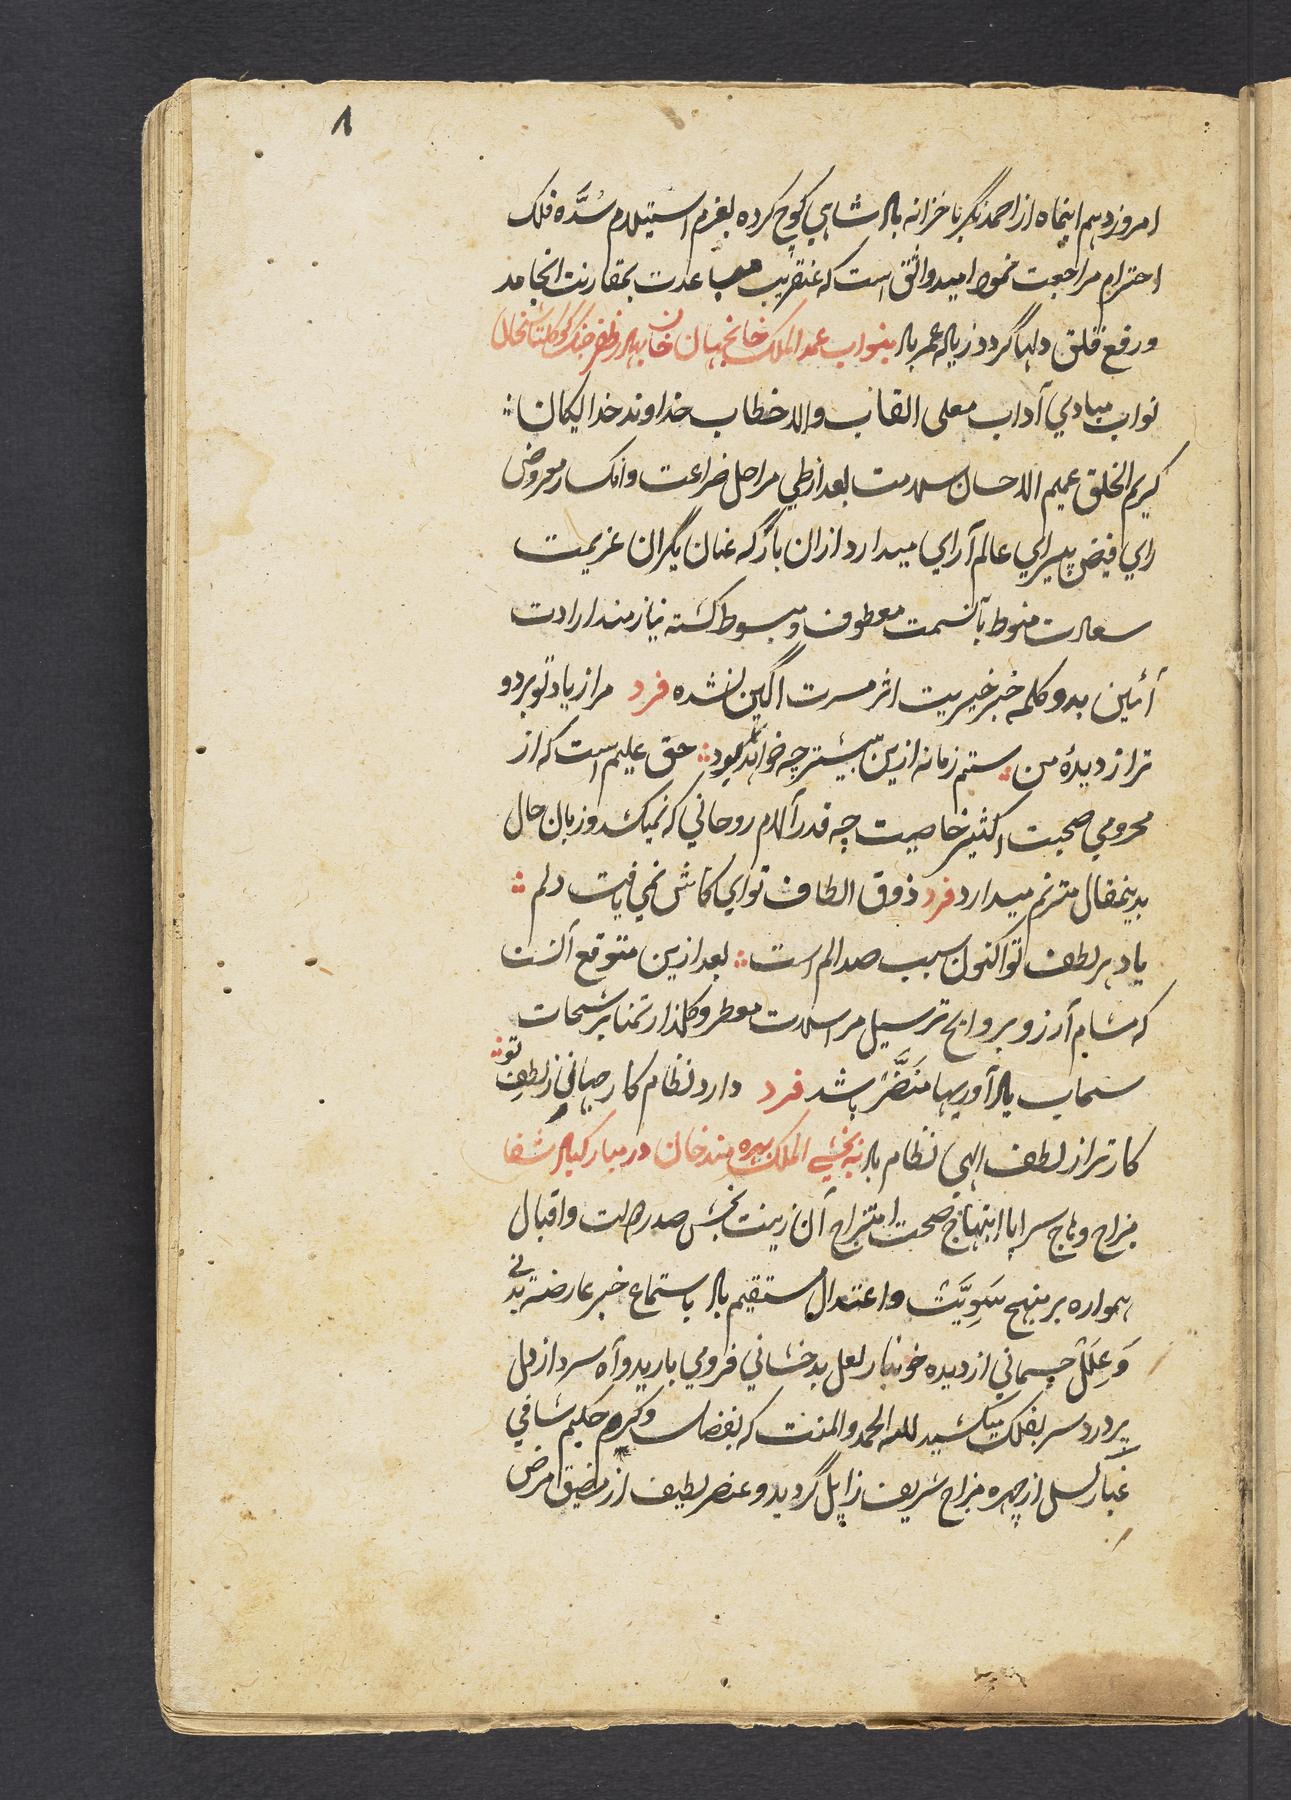 ۸
امروز دهم اینماه از احمدنگر با خزانه بادشاهی کوچ کرده بعزم استیلام سُدَّه فلک
احترام مراجعت نمود امید واثق است که عنقریب مباعدت بمقارنت انجامد
ورفع قلق دلها گردد زیاده عمر باد بنواب عمدة الملک خانجهان خان بهادر ظفر جنگ کوکلتاش
نواب مبادی آداب معلی القاب والا خطاب خداوند خدایگان
کریم الخلق عمیم الاحسان سلامت بعد از طی مراحل ضراعت وانکسار معروض
رای فیض پیرای عالم آرای میدارد از ان باز که عنان یکران عزیمت
سعادت منوط بآنسمت معطوف و مبسوط کشته نیازمند ارادت
آئین بدو کلمه خبر خیریت اثر مسرت اگین نشده فرد مرا ز یاد تو برد و
ترا ز دیدۀ من ستم زمانه ازین بیشتر چه خواهد بود حق علیم است که از
محرومی صحبت اکثیر خاصیت چه قدر آلام روحانی که نمیکشد و زبان حال
بدینمقال مترنم میدارد فرد ذوق الطاف تو ای کاش نمی یافت دلم
یاد هر لطف تو اکنون سبب صد الم است بعد ازین متوقع آنست
که مشام آرزو بروایح ترسیل مراسلات معطر و گلذار تمنا برشحات
سحاب یاد آوریها مُنَضَّر باشد فرد دارد نظام کار جهانی ز لطف تو
کار ترا ز لطف الهی نظام باد به بخشی الملک بهره مند خان در مبارکباد شفا
مزاج وهاج سراپا ابتهاج صحت امتزاج آن زینت بخش صدر دولت واقبال
همواره بر منهج سَوِیَّت واعتدال مستقیم باد باستماع خبر عارضه بدنی
وَعِلَل جسمانی از دیده خونبار لعل بدخشانی فرومی بارید و آه سرد از دل
پر درد سر بفلک میکشید لله الحمد والمنت که بفضل وکرم حکیم شافی
غبار کسل از چهره مزاج شریف زایل گردید و عنصر لطیف از مضیق مرض